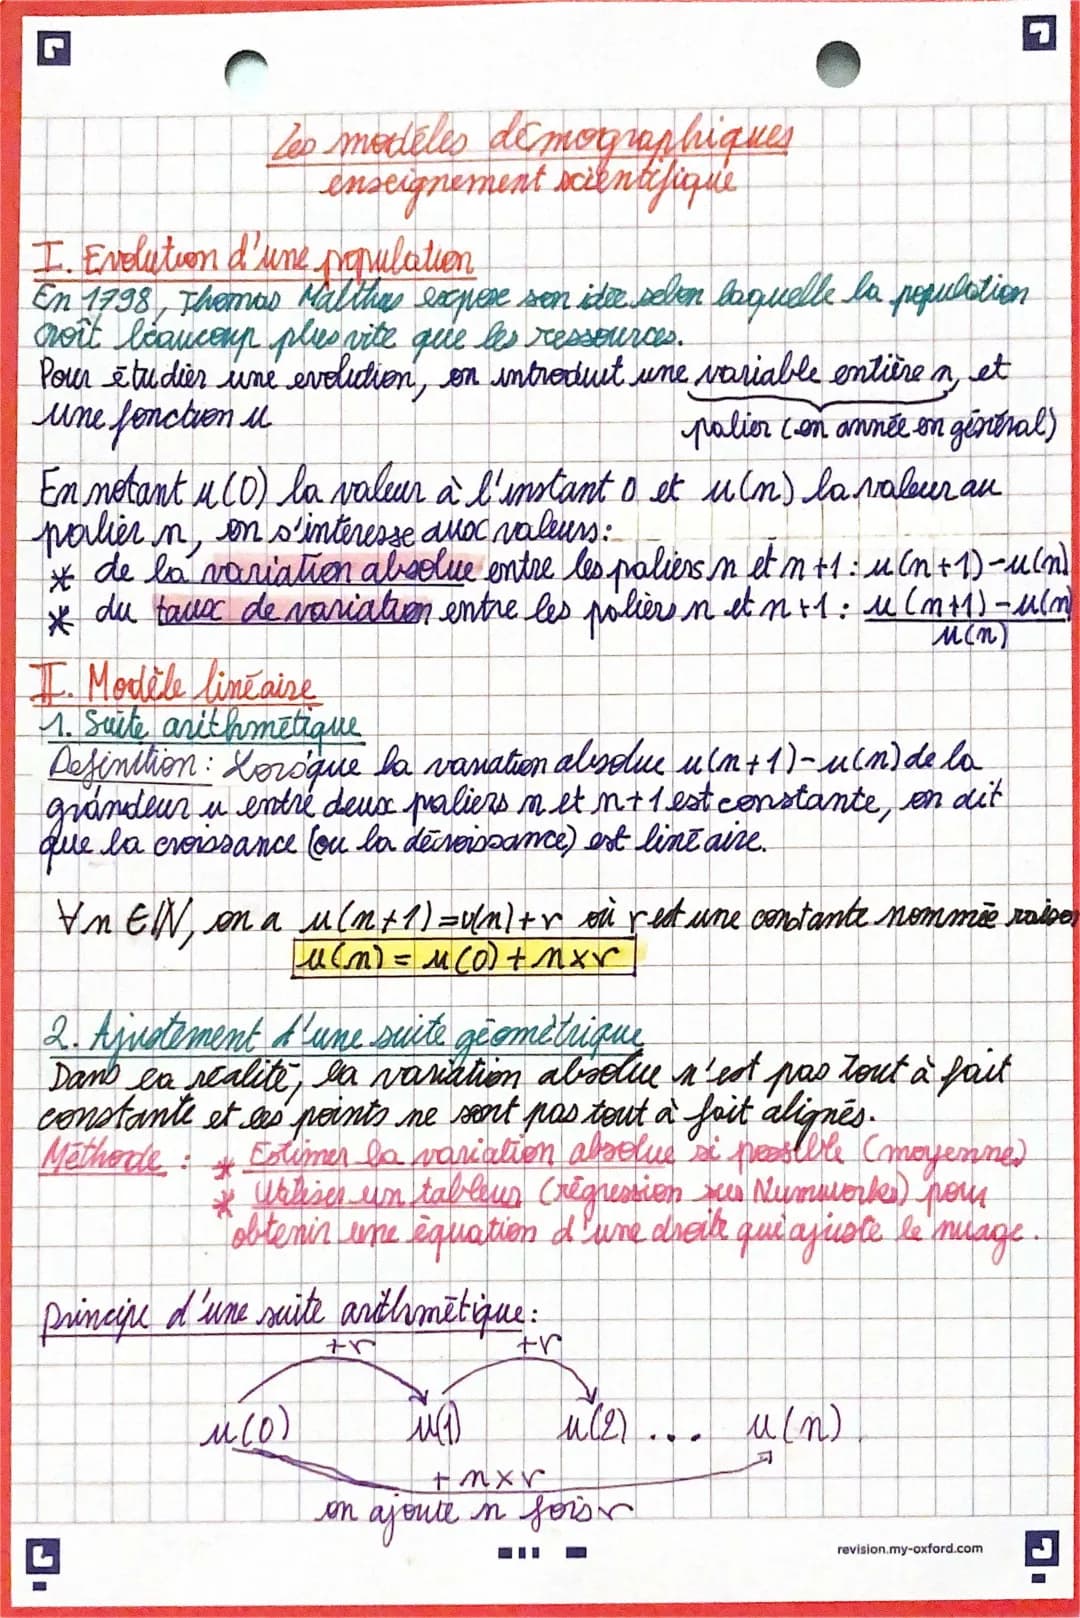 Les modèles démographiques
enseignement scientifique
I. Evolution d'une population
En 1798, Thomas Malthus expose son idée selon laquelle la population
croît beaucoup plus vite que les ressources.
Pour étudier une evolution, on introduit une variable entière n, et
une fonction u
palier (en année en général)
En notant u(0) la valeur à l'instant 0 et u(n) la valeur au
palier n, on s'intéresse aux valeurs:
* de la variation absolue entre les paliers n et n+1 : u(n+1)-u(n)
* du taux de variation entre les paliers n et n+1 : u(n+1)-u(n)
u(n)
II. Modèle linéaire
1. Suite arithmétique
Definition : Lorsque la variation absolue u(n+1)-u(n) de la
grandeur u entre deux paliers n et n+1 est constante, on dit
que la croissance (ou la décroissance) est linéaire.
∀n ∈ ℕ, on a u(n+1)=u(n)+r où r est une constante nommée raison
u(n) = u(0) + n×r
2. Ajustement d'une suite géométrique
Dans la réalité, la variation absolue n'est pas tout à fait
constante et les points ne sont pas tout à fait alignés.
Méthode : * Estimer la variation absolue si possible (moyenne)
* Utiliser un tableur (régression sur Numworks) pour
obtenir une équation d'une droite qui ajuste le nuage.
Principe d'une suite arithmétique :
+r +r
u(0) u(1) u(2) ... u(n)
+ n×r
on ajoute n fois r
revision.my-oxford.com